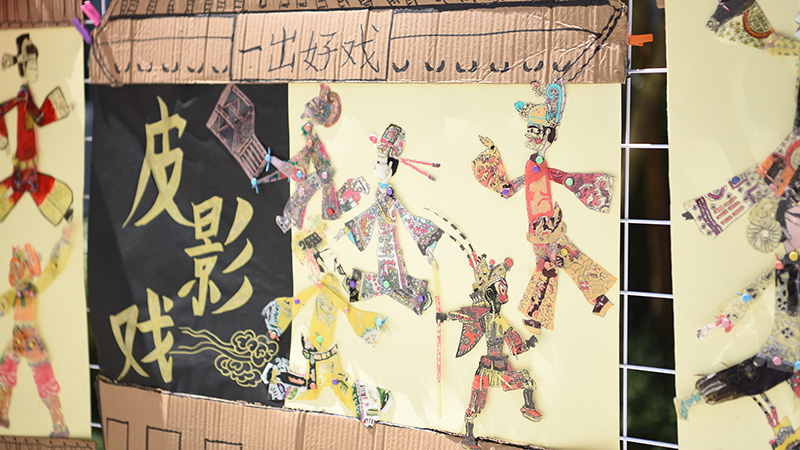 一出好戏
皮影戏